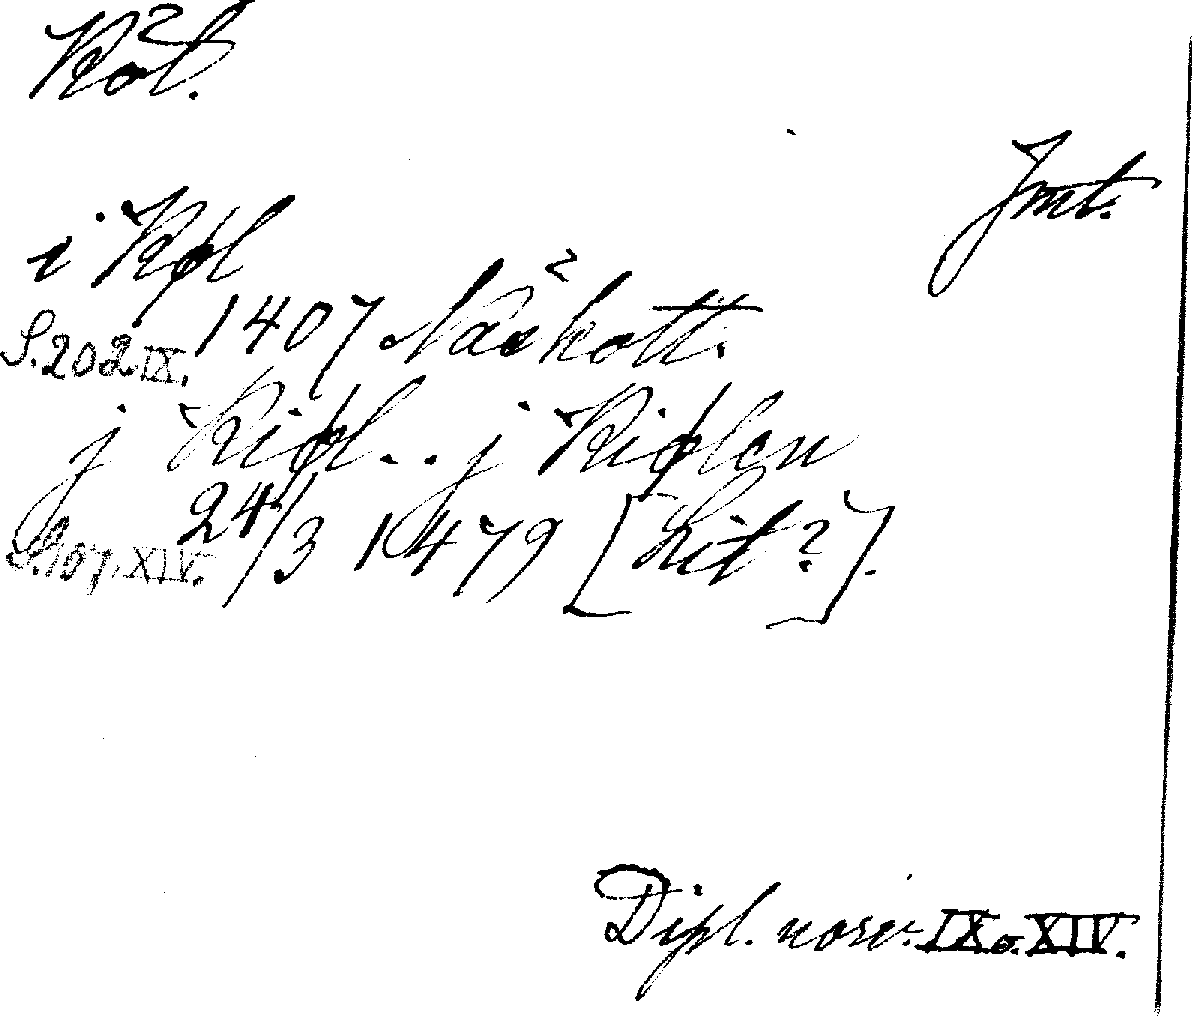 Köl.
Jmt.
i Køl
S. 202 IX. 1407 Näskott.
j Kiøl.. j Kiølen
S. 107. XIV. 24/3 1479 [Hit?].
Dipl. norv. IX o. XIV.